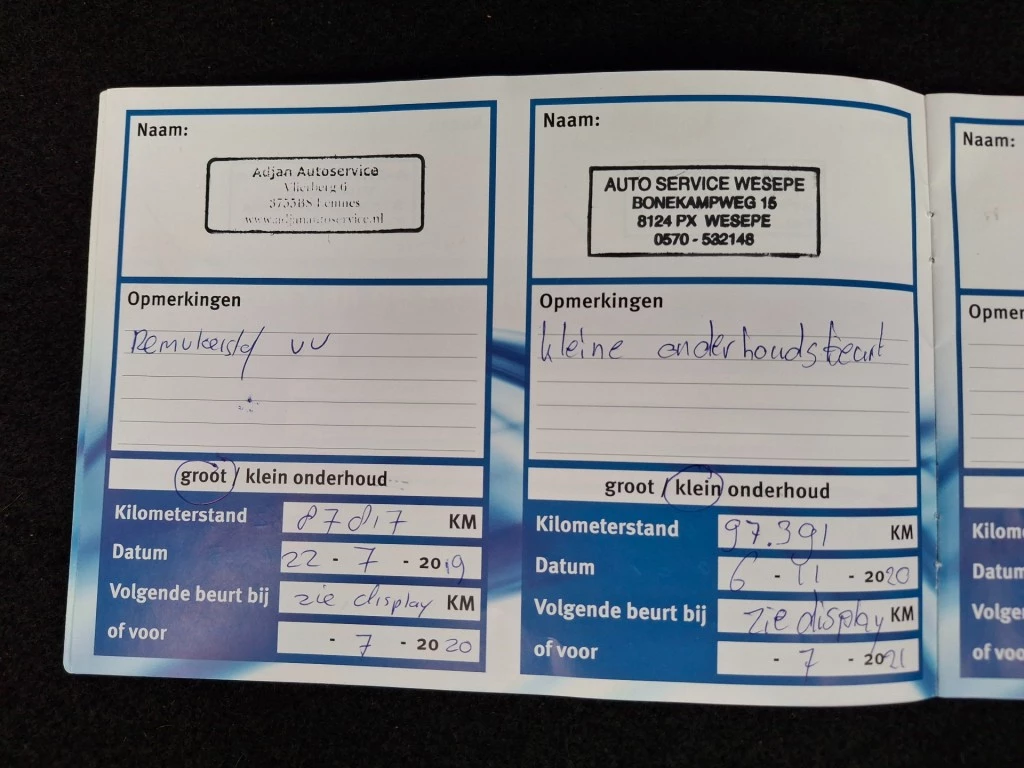 Naam:
Adjan Autoservice
Vlierberg 6
3755BS Eemnes
www.adjanautoservice.nl
Opmerkingen
groot / klein onderhoud
Kilometerstand 87817 KM
Datum 22 - 7 - 2019
Volgende beurt bij zie display KM
of voor - 7 - 20 20
Naam:
AUTO SERVICE WESEPE
BONEKAMPWEG 15
8124 PX WESEPE
0570 - 532148
Opmerkingen
kleine onderhoudsbeurt
groot / klein onderhoud
Kilometerstand 97.391 KM
Datum 6 - 11 - 2020
Volgende beurt bij zie display KM
of voor - 7 - 2021
Naam: